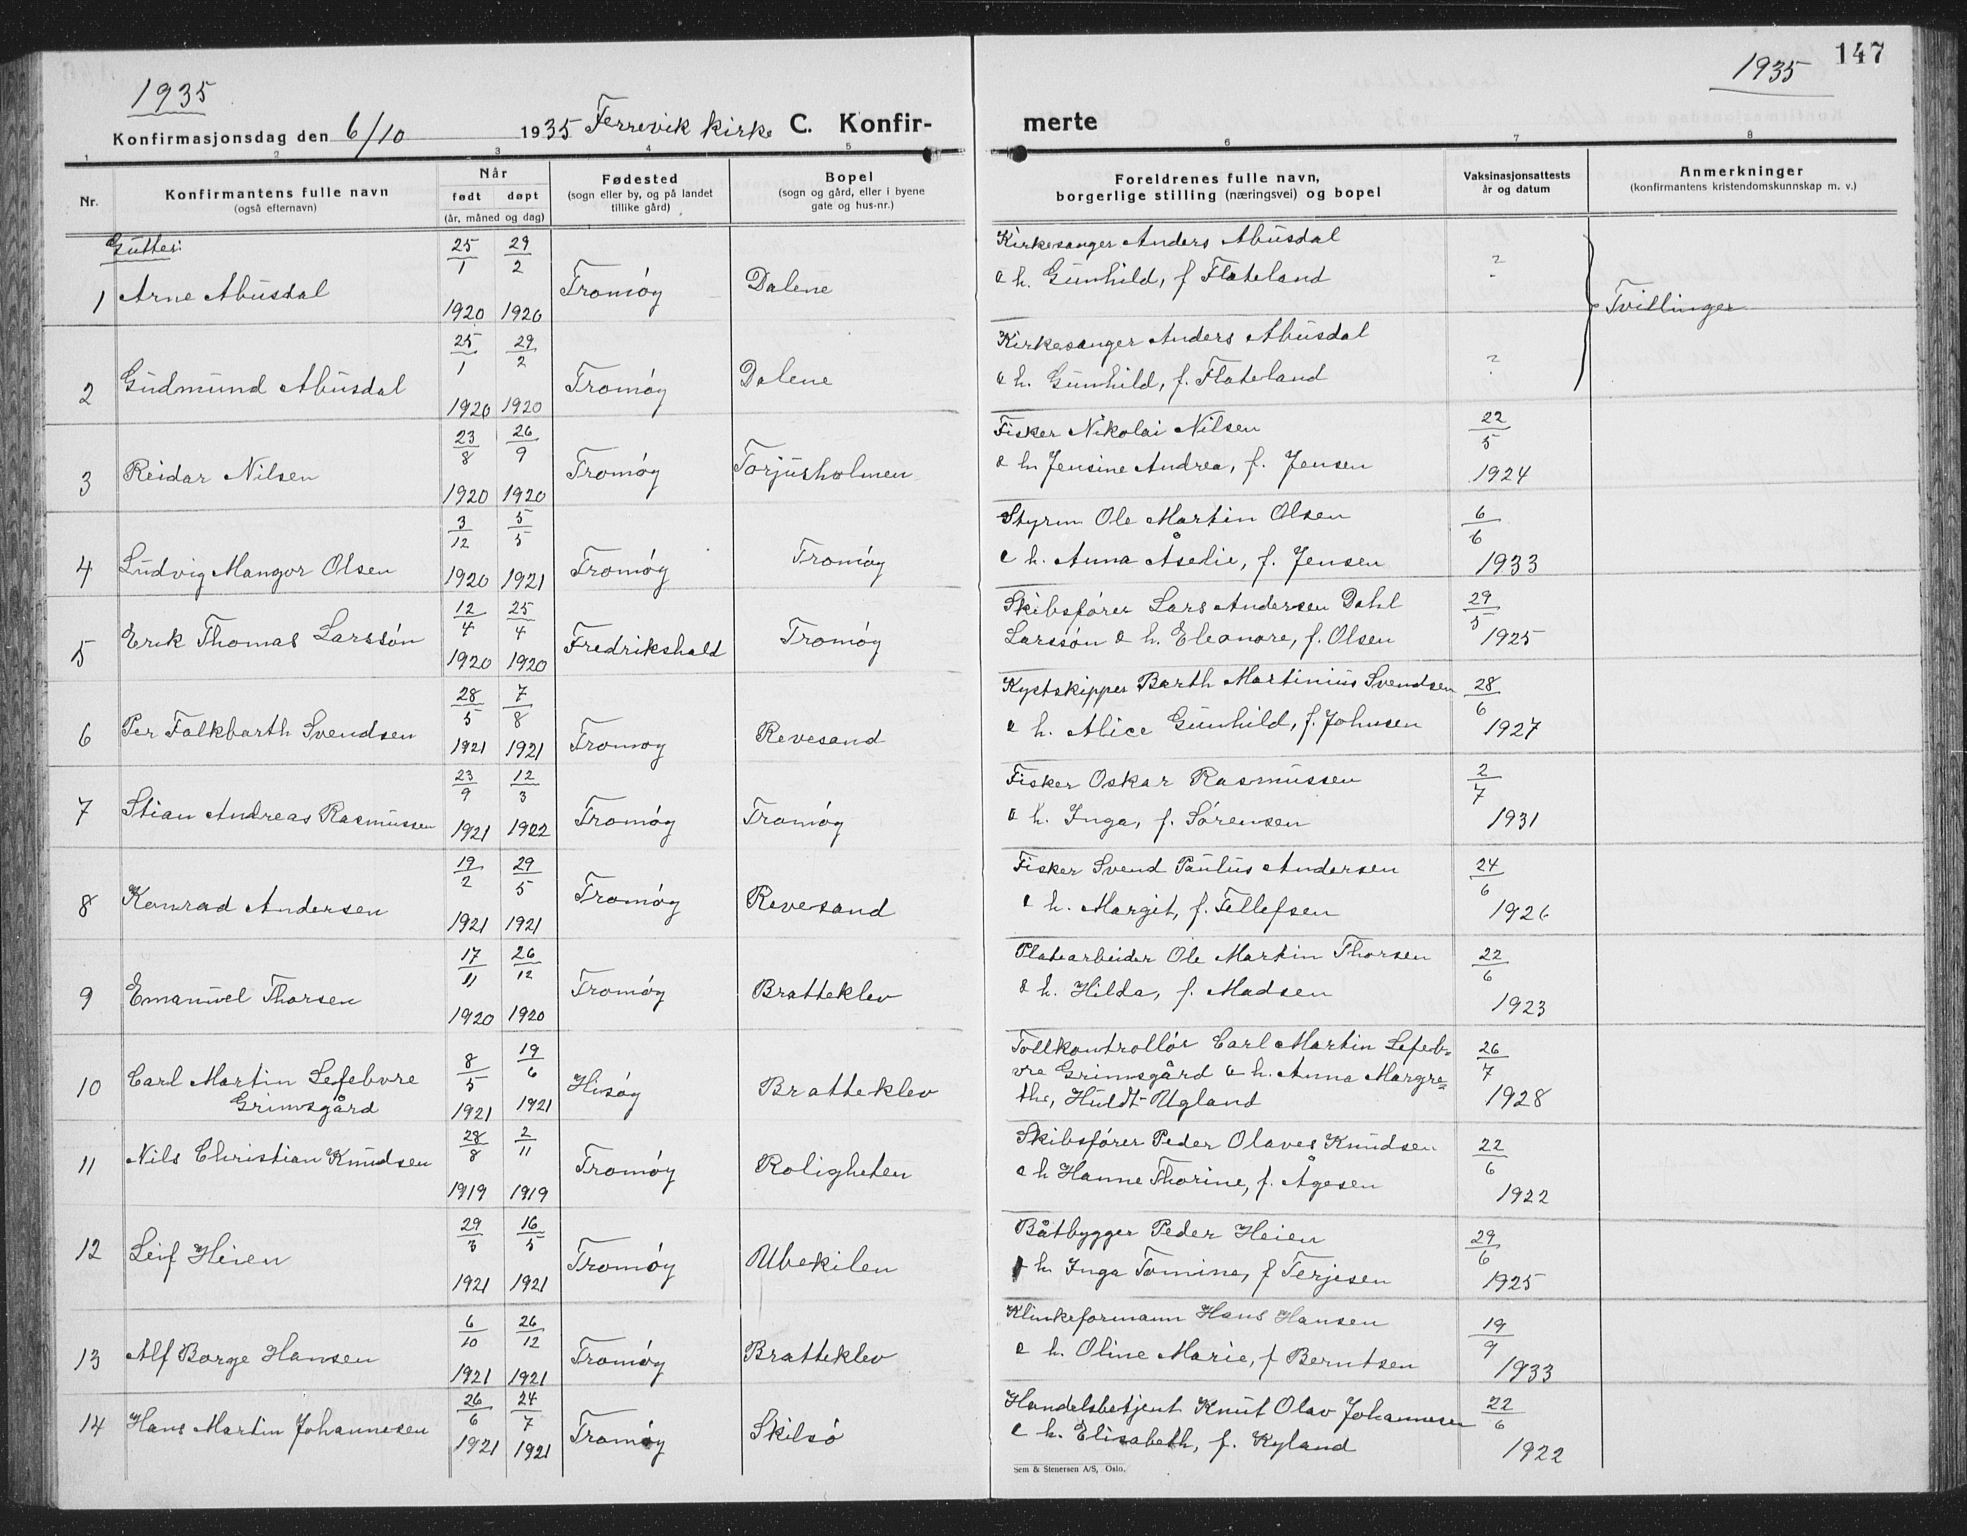 1935
Konfirmasjonsdag den 6/10 1935 Færevik kirke C. Konfir-
1 2 3 4 5
Nr. Konfirmantens fulle navn (også efternavn)
Når
født døpt
(år, måned og dag)
Fødested
(sogn eller by, og på landet
tillike gård)
Bopel
(sogn og gård, eller i byene
gate og hus-nr.)
Gutter:
1 Arne Abusdal 25/1 1920 29/2 1920 Tromøy Dalene
2 Gudmund Abusdal 25/1 1920 29/2 1920 Tromøy Dalene
3 Reidar Nilsen 23/8 1920 26/9 1920 Tromøy Torjusholmen
4 Ludvig Mangor Olsen 3/12 1920 5/5 1921 Tromøy Tromøy
5 Erik Thomas Larssøn 12/4 1920 25/4 1920 Fredrikshald Tromøy
6 Per Falkbarth Svendsen 28/5 1921 7/8 1921 Tromøy Revesand
7 Stian Andreas Rasmussen 23/9 1921 12/3 1922 Tromøy Tromøy
8 Konrad Andersen 19/2 1921 29/5 1921 Tromøy Revesand
9 Emanuel Thorsen 17/11 1920 26/12 1920 Tromøy Bratteklev
10 Carl Martin Lefebvre
Grimsgård 8/5 1921 19/6 1921 Hisøy Bratteklev
11 Nils Christian Knudsen 28/8 1919 2/11 1919 Tromøy Roligheten
12 Leif Heien 29/3 1921 16/5 1921 Tromøy Ubekilen
13 Alf Borge Hansen 6/10 1921 26/12 1921 Tromøy Bratteklev
14 Hans Martin Johannesen 26/6 1921 24/7 1921 Tromøy Skilsø
147
1935
merte
6 7 8
Foreldrenes fulle navn,
borgerlige stilling (næringsvei) og bopel
Vaksinasjonsattests
år og datum
Anmerkninger
(konfirmantens kristendomskunnskap m. v.)
Kirkesanger Anders Abusdal
& h. Gunhild, f Flateland ?
Tvillinger
Kirkesanger Anders Abusdal
& h. Gunhild, f. Flateland ?
Fisker Nikolai Nilsen
& h. Jensine Andrea, f. Jensen 22/5 1924
Styrm Ole Martin Olsen
& h. Anna Åsedie, f. Jensen 6/6 1933
Skibsfører Lars Andersen Dahl
Larssøn & h. Eleonore, f. Olsen 29/5 1925
Kystskipper Barth Martinius Svendsen
& h. Alice Gunhild, f. Johnsen 28/6 1927
Fisker Oskar Rasmussen
& h. Inga, f. Sörensen 2/7 1931
Fisker Svend Paulus Andersen
& h. Margit, f. Tellefsen 24/6 1926
Platearbeider Ole Martin Thorsen
& h. Hilda, f. Madsen 22/6 1923
Tollkontrollør Carl Martin Lefeb-
vre Grimsgård & h. Anna Margre-
the, Huldt-Ugland 26/7 1928
Skibsfører Peder Olaves Knudsen
& h Hanne Thorine, f. Ågesen 22/6 1922
Båtbygger Peder Heien
& h. Inga Tomine, f Terjesen 29/6 1925
Klinkeformann Hans Hansen
& h. Oline Marie, f Berntsen 19/9 1933
Handelsbetjent Knut Olav Johannesen
& h. Elisabeth, f. Kyland 22/6 1922
Sem & Stenersen A/S, Oslo.